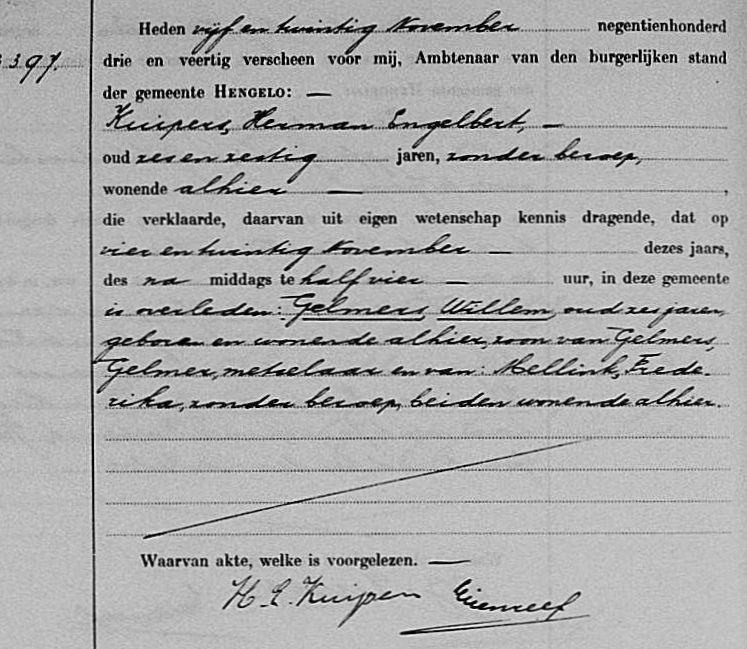 Heden vijf en twintig November negentienhonderd
397.
drie en veertig verscheen voor mij, Ambtenaar van den burgerlijken stand
der gemeente HENGELO: —
Kuipers, Herman Engelbert, —
oud zes en zestig jaren, zonder beroep,
wonende alhier — ,
die verklaarde, daarvan uit eigen wetenschap kennis dragende, dat op
vier en twintig November — dezes jaars,
des na middags te half vier — uur, in deze gemeente
is overleden: Gelmers, Willem, oud zes jaren,
geboren en wonende alhier, zoon van Gelmers,
Gelmer, metselaar en van: Mellink, Frede-
rika, zonder beroep, beiden wonende alhier.
Waarvan akte, welke is voorgelezen. —
H. E. Kuipers